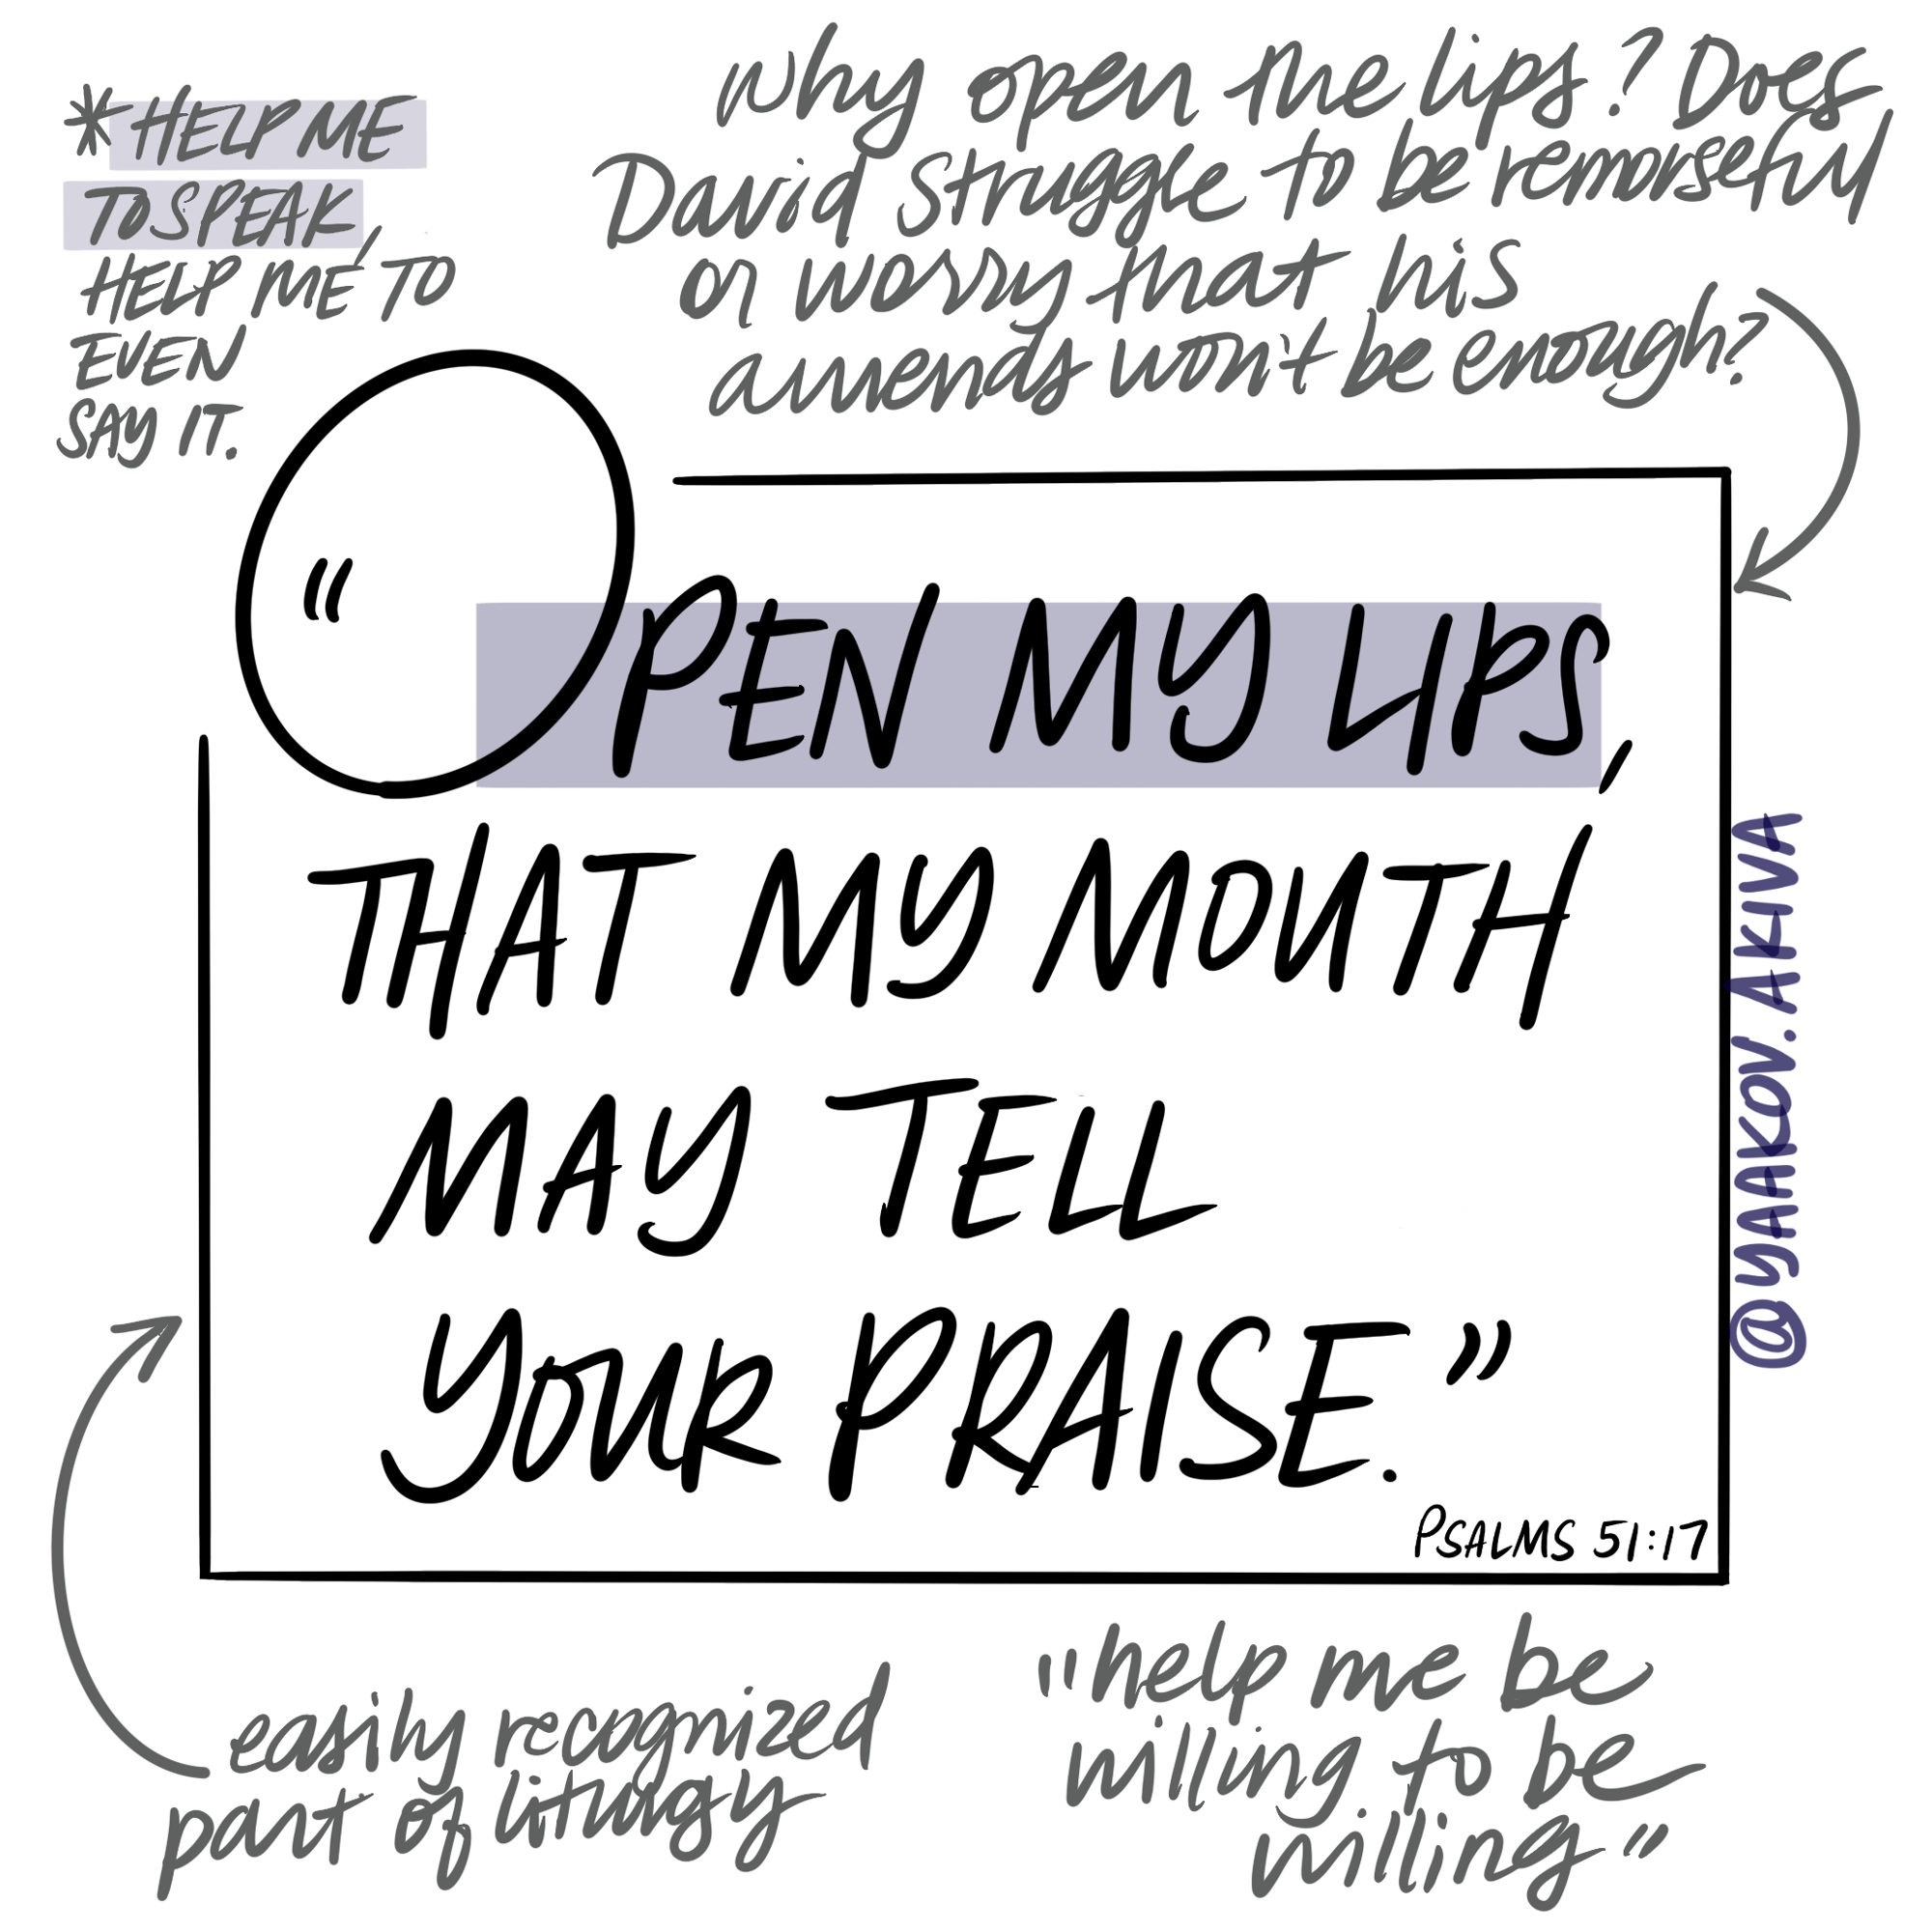 * HELP ME
TO SPEAK
HELP ME TO
EVEN
SAY IT.
Why open the lips? Does
David struggle to be remorseful
or worry that his
ammends won't be enough?
"OPEN MY LIPS,
THAT MY MOUTH
MAY TELL
YOUR PRAISE."
PSALMS 51:17
@YAAKOV.AKIVA
easily recognized
part of liturgy
"help me be
willing to be
willing"